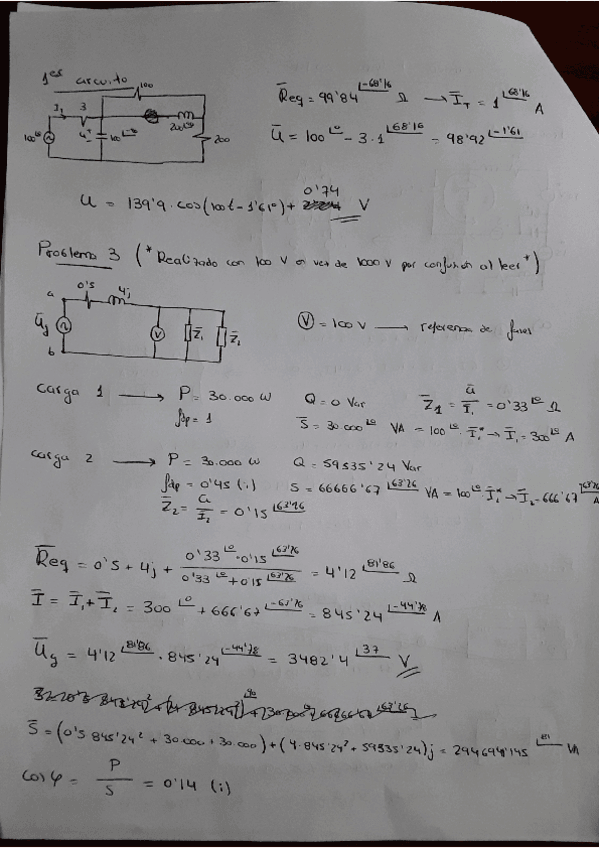 1er circuito
100
I₁ 3
100∠0 100∠-90 200∠90 200
Req = 99'84 ∠-68'16 Ω → I_T = 1 ∠68'16 A
U = 100 ∠0 - 3·1 ∠68'16 = 98'92 ∠-1'61
u = 139'9 · cos(100t - 1'61º) + 0'74 V
Problema 3 (* Realizado con 100 V en vez de 1000 V por confusion al leer *)
a 0'5 4j
Ug V Z₁ Z₂
b
V = 100 V → referencia de fases
Carga 1 → P = 30.000 W Q = 0 Var Z₁ = U/I₁ = 0'33 ∠0 Ω
fdp = 1 S = 30.000 ∠0 VA = 100 ∠0 · I₁* → I₁ = 300 ∠0 A
Carga 2 → P = 30.000 W Q = 59535'24 Var
fdp = 0'45 (i) S = 66666'67 ∠63'26 VA = 100 ∠0 I₂* → I₂ = 666'67 ∠63'26 A
Z₂ = U/I₂ = 0'15 ∠63'26
Req = 0'5 + 4j + (0'33 ∠0 · 0'15 ∠63'26)/(0'33 ∠0 + 0'15 ∠63'26) = 4'12 ∠81'86 Ω
I = I₁ + I₂ = 300 ∠0 + 666'67 ∠-63'26 = 845'24 ∠-44'78 A
Ug = 4'12 ∠81'86 · 845'24 ∠-44'78 = 3482'4 ∠37 V
S = (0'5·845'24² + 30.000 + 30.000) + (4·845'24² + 59535'24)j = ∠81 VA
cos φ = P/S = 0'14 (i)